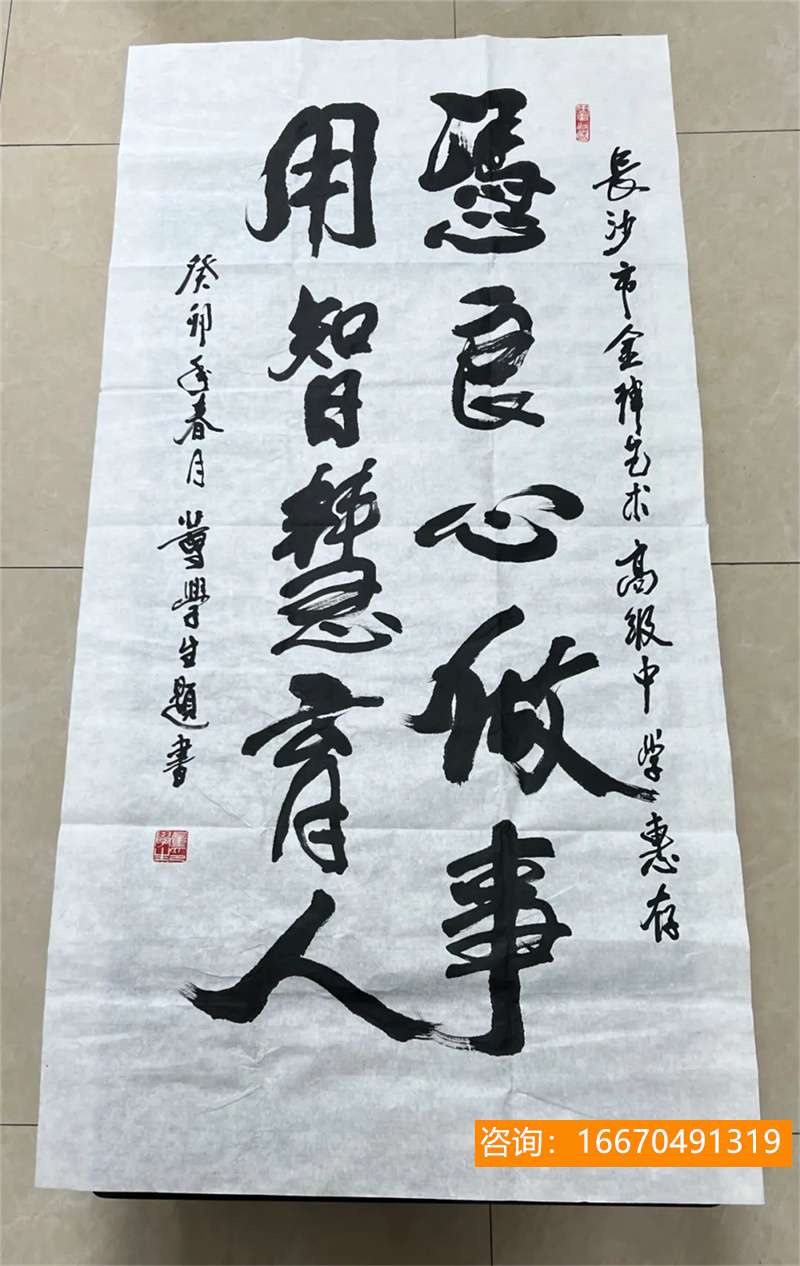 長沙市金祥艺术高级中学惠存
憑良心做事
用智慧育人
癸卯年春月 學生題書
咨询：16670491319